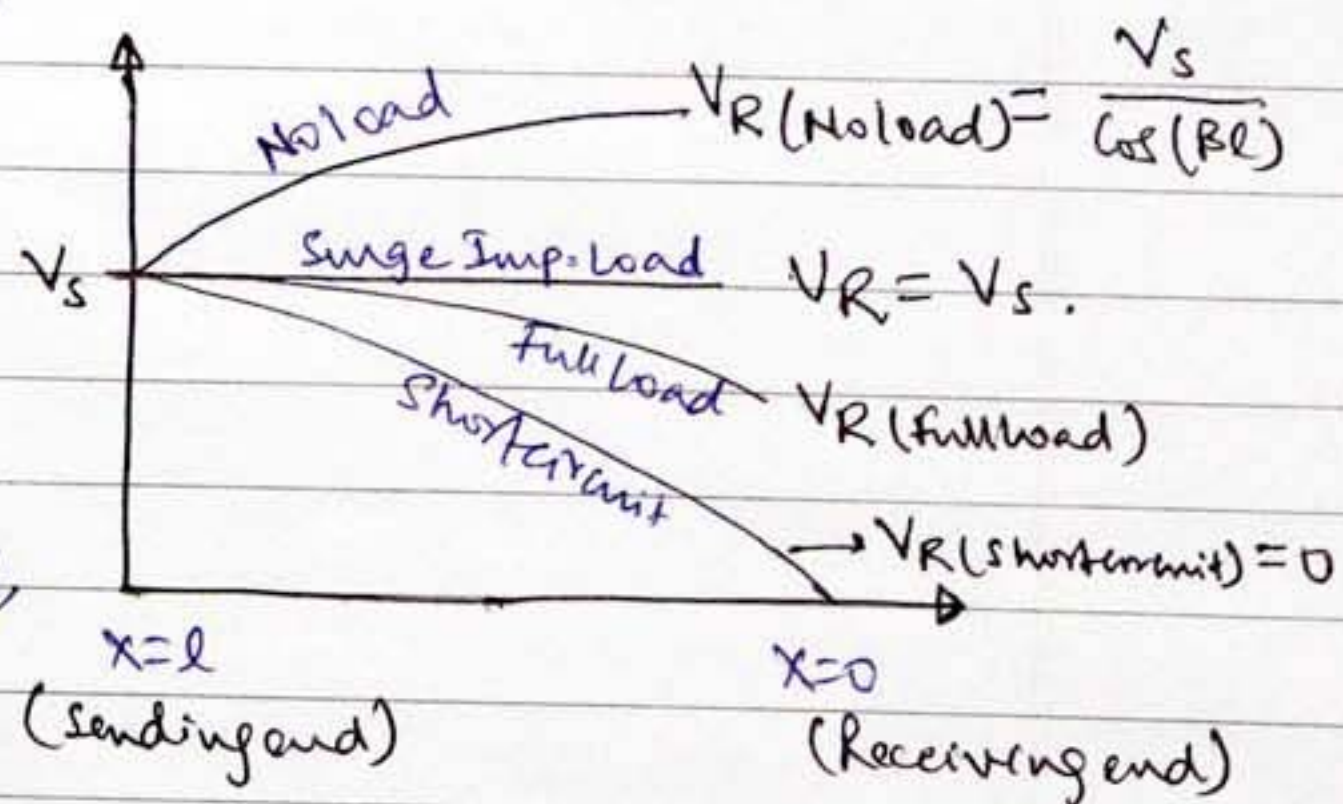 No load
V_R (No load) = V_s / Cos(βl)
V_s
Surge Imp. Load
V_R = V_s .
Full Load
V_R (full load)
Short circuit
→ V_R (short circuit) = 0
x=l
x=0
(Sending end)
(Receiving end)